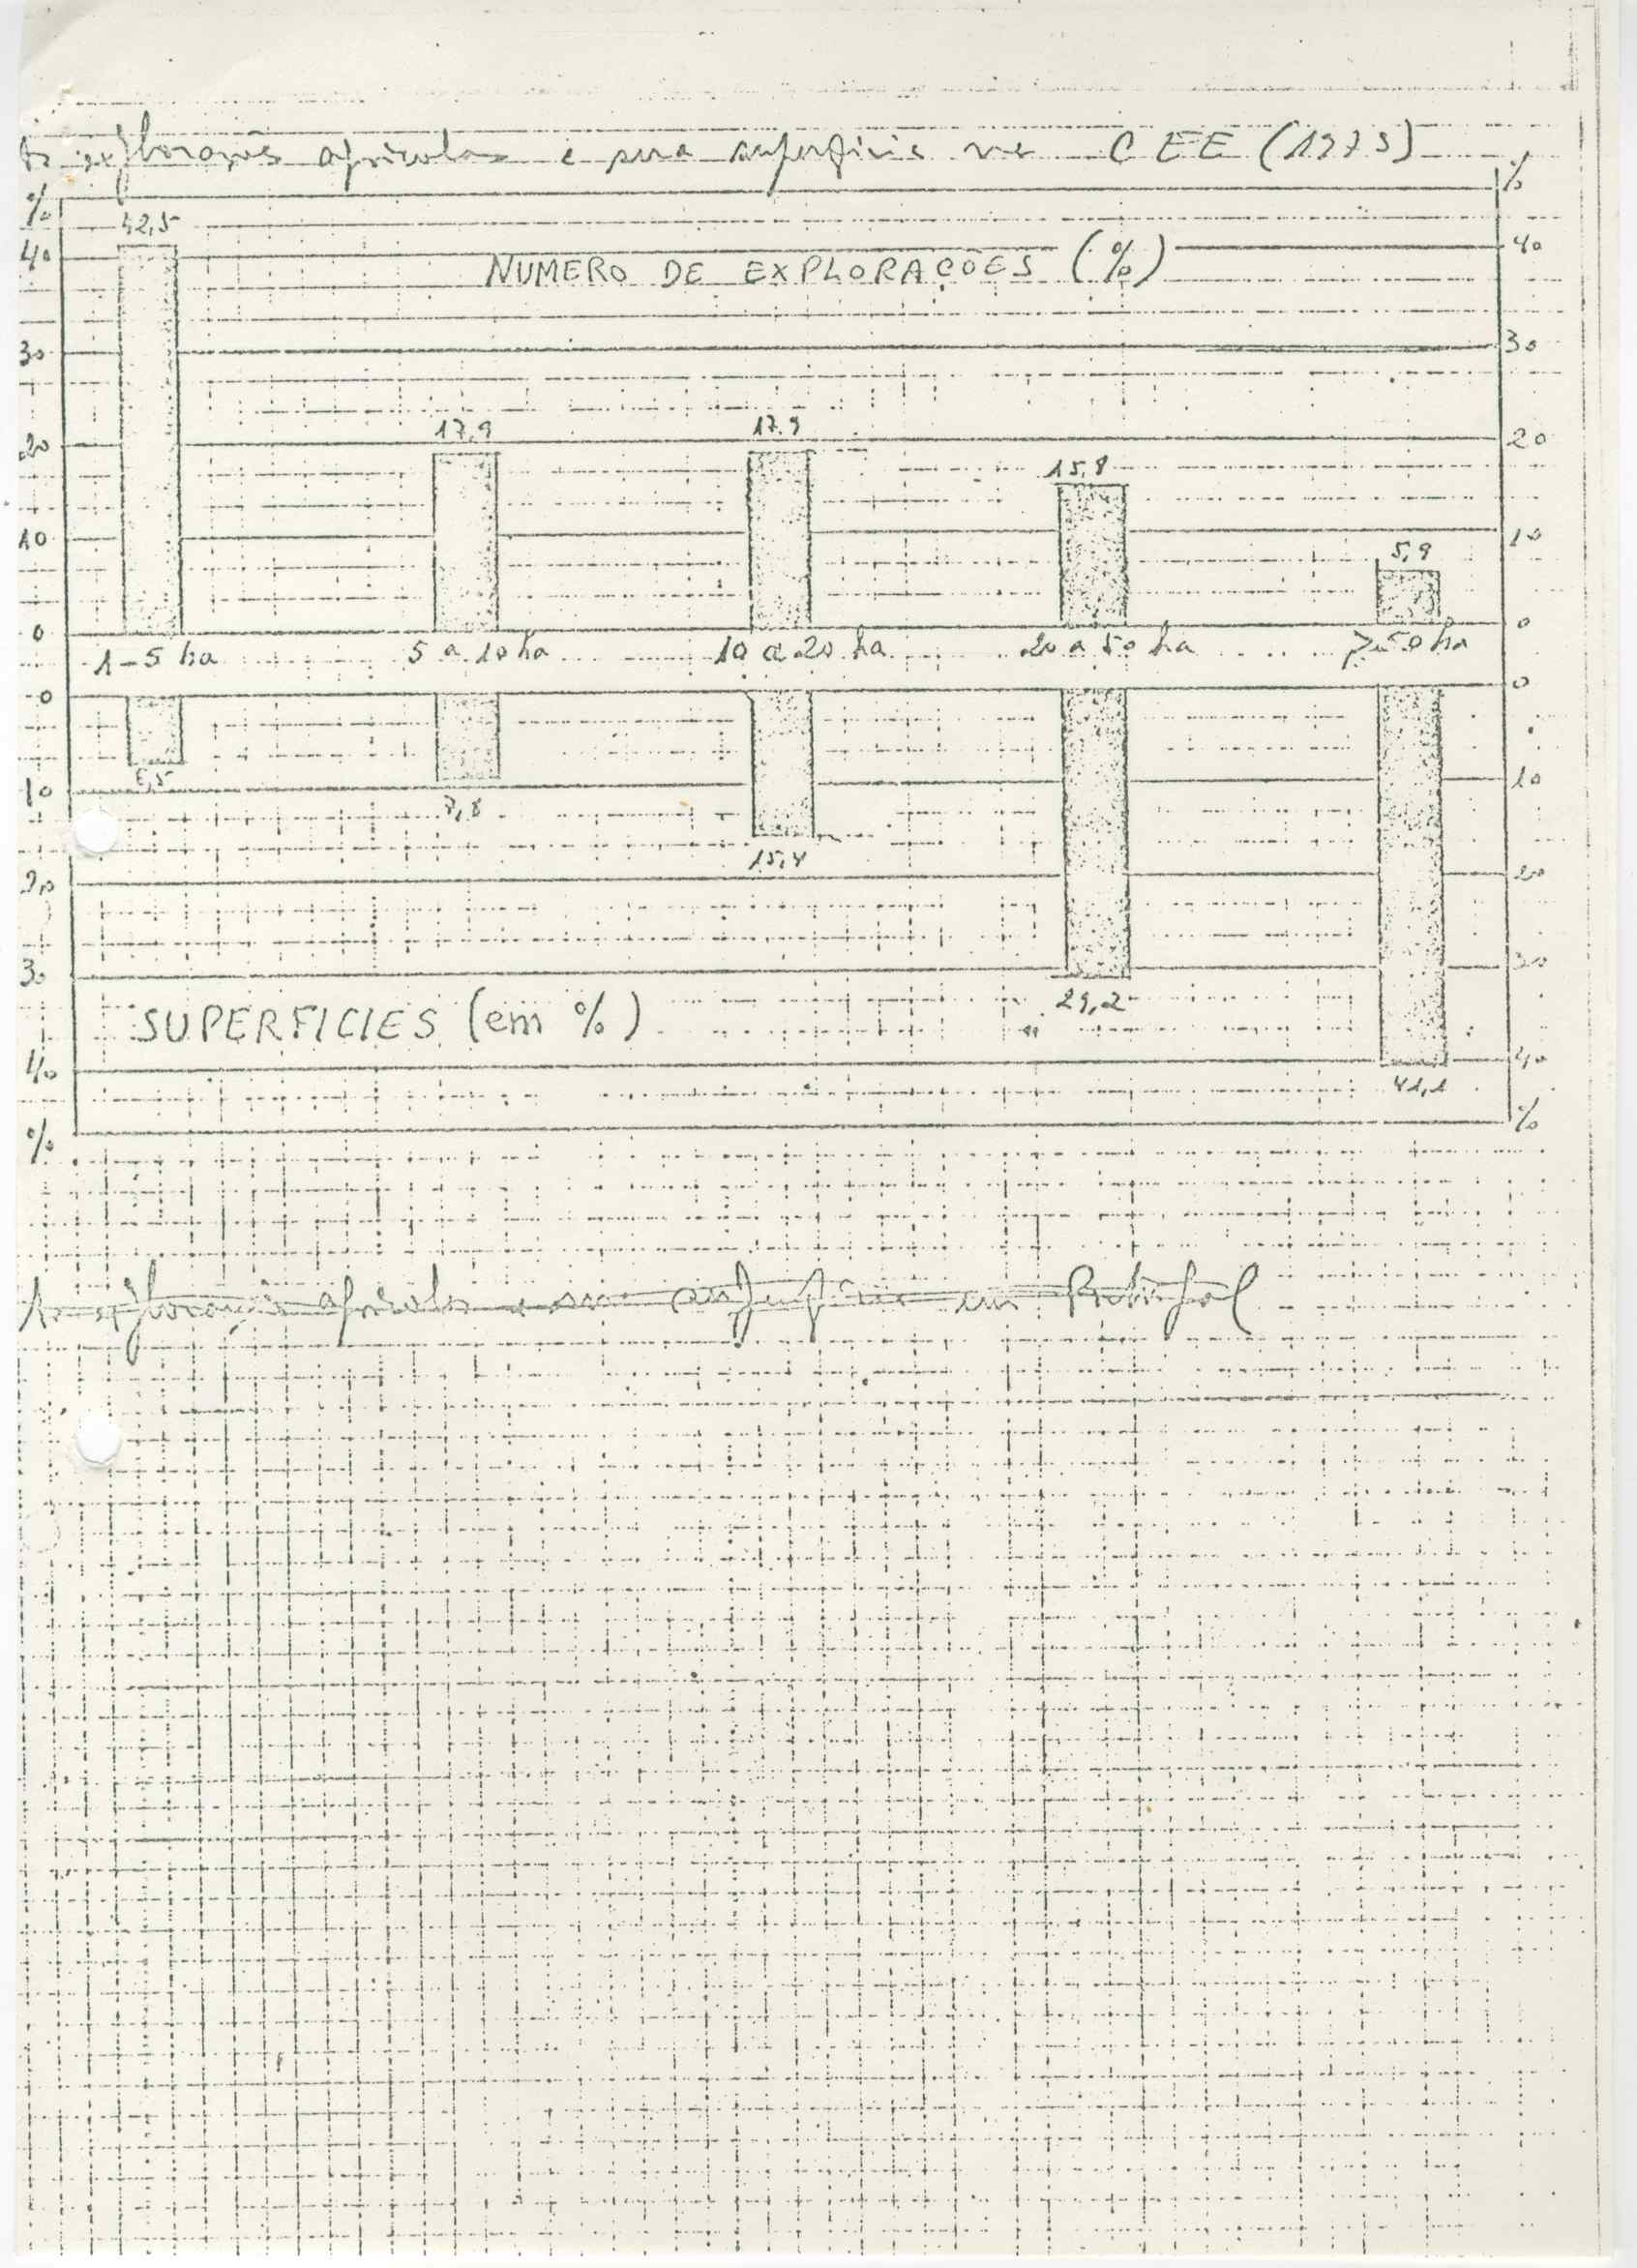 As explorações agrícolas e sua superfície na CEE (1975)
% %
42,5
40 NUMERO DE EXPLORAÇOES (%) 40
30 30
17,9 17.9
20 20
15,8
10 10
5,9
0 0
1-5 ha 5 a 10 ha 10 a 20 ha 20 a 50 ha > 50 ha
0 0
6,5
10 10
7,8
15,4
20 20
30 30
29,2
SUPERFICIES (em %)
40 40
41,1
% %
As explorações agrícolas e sua superfície em Portugal